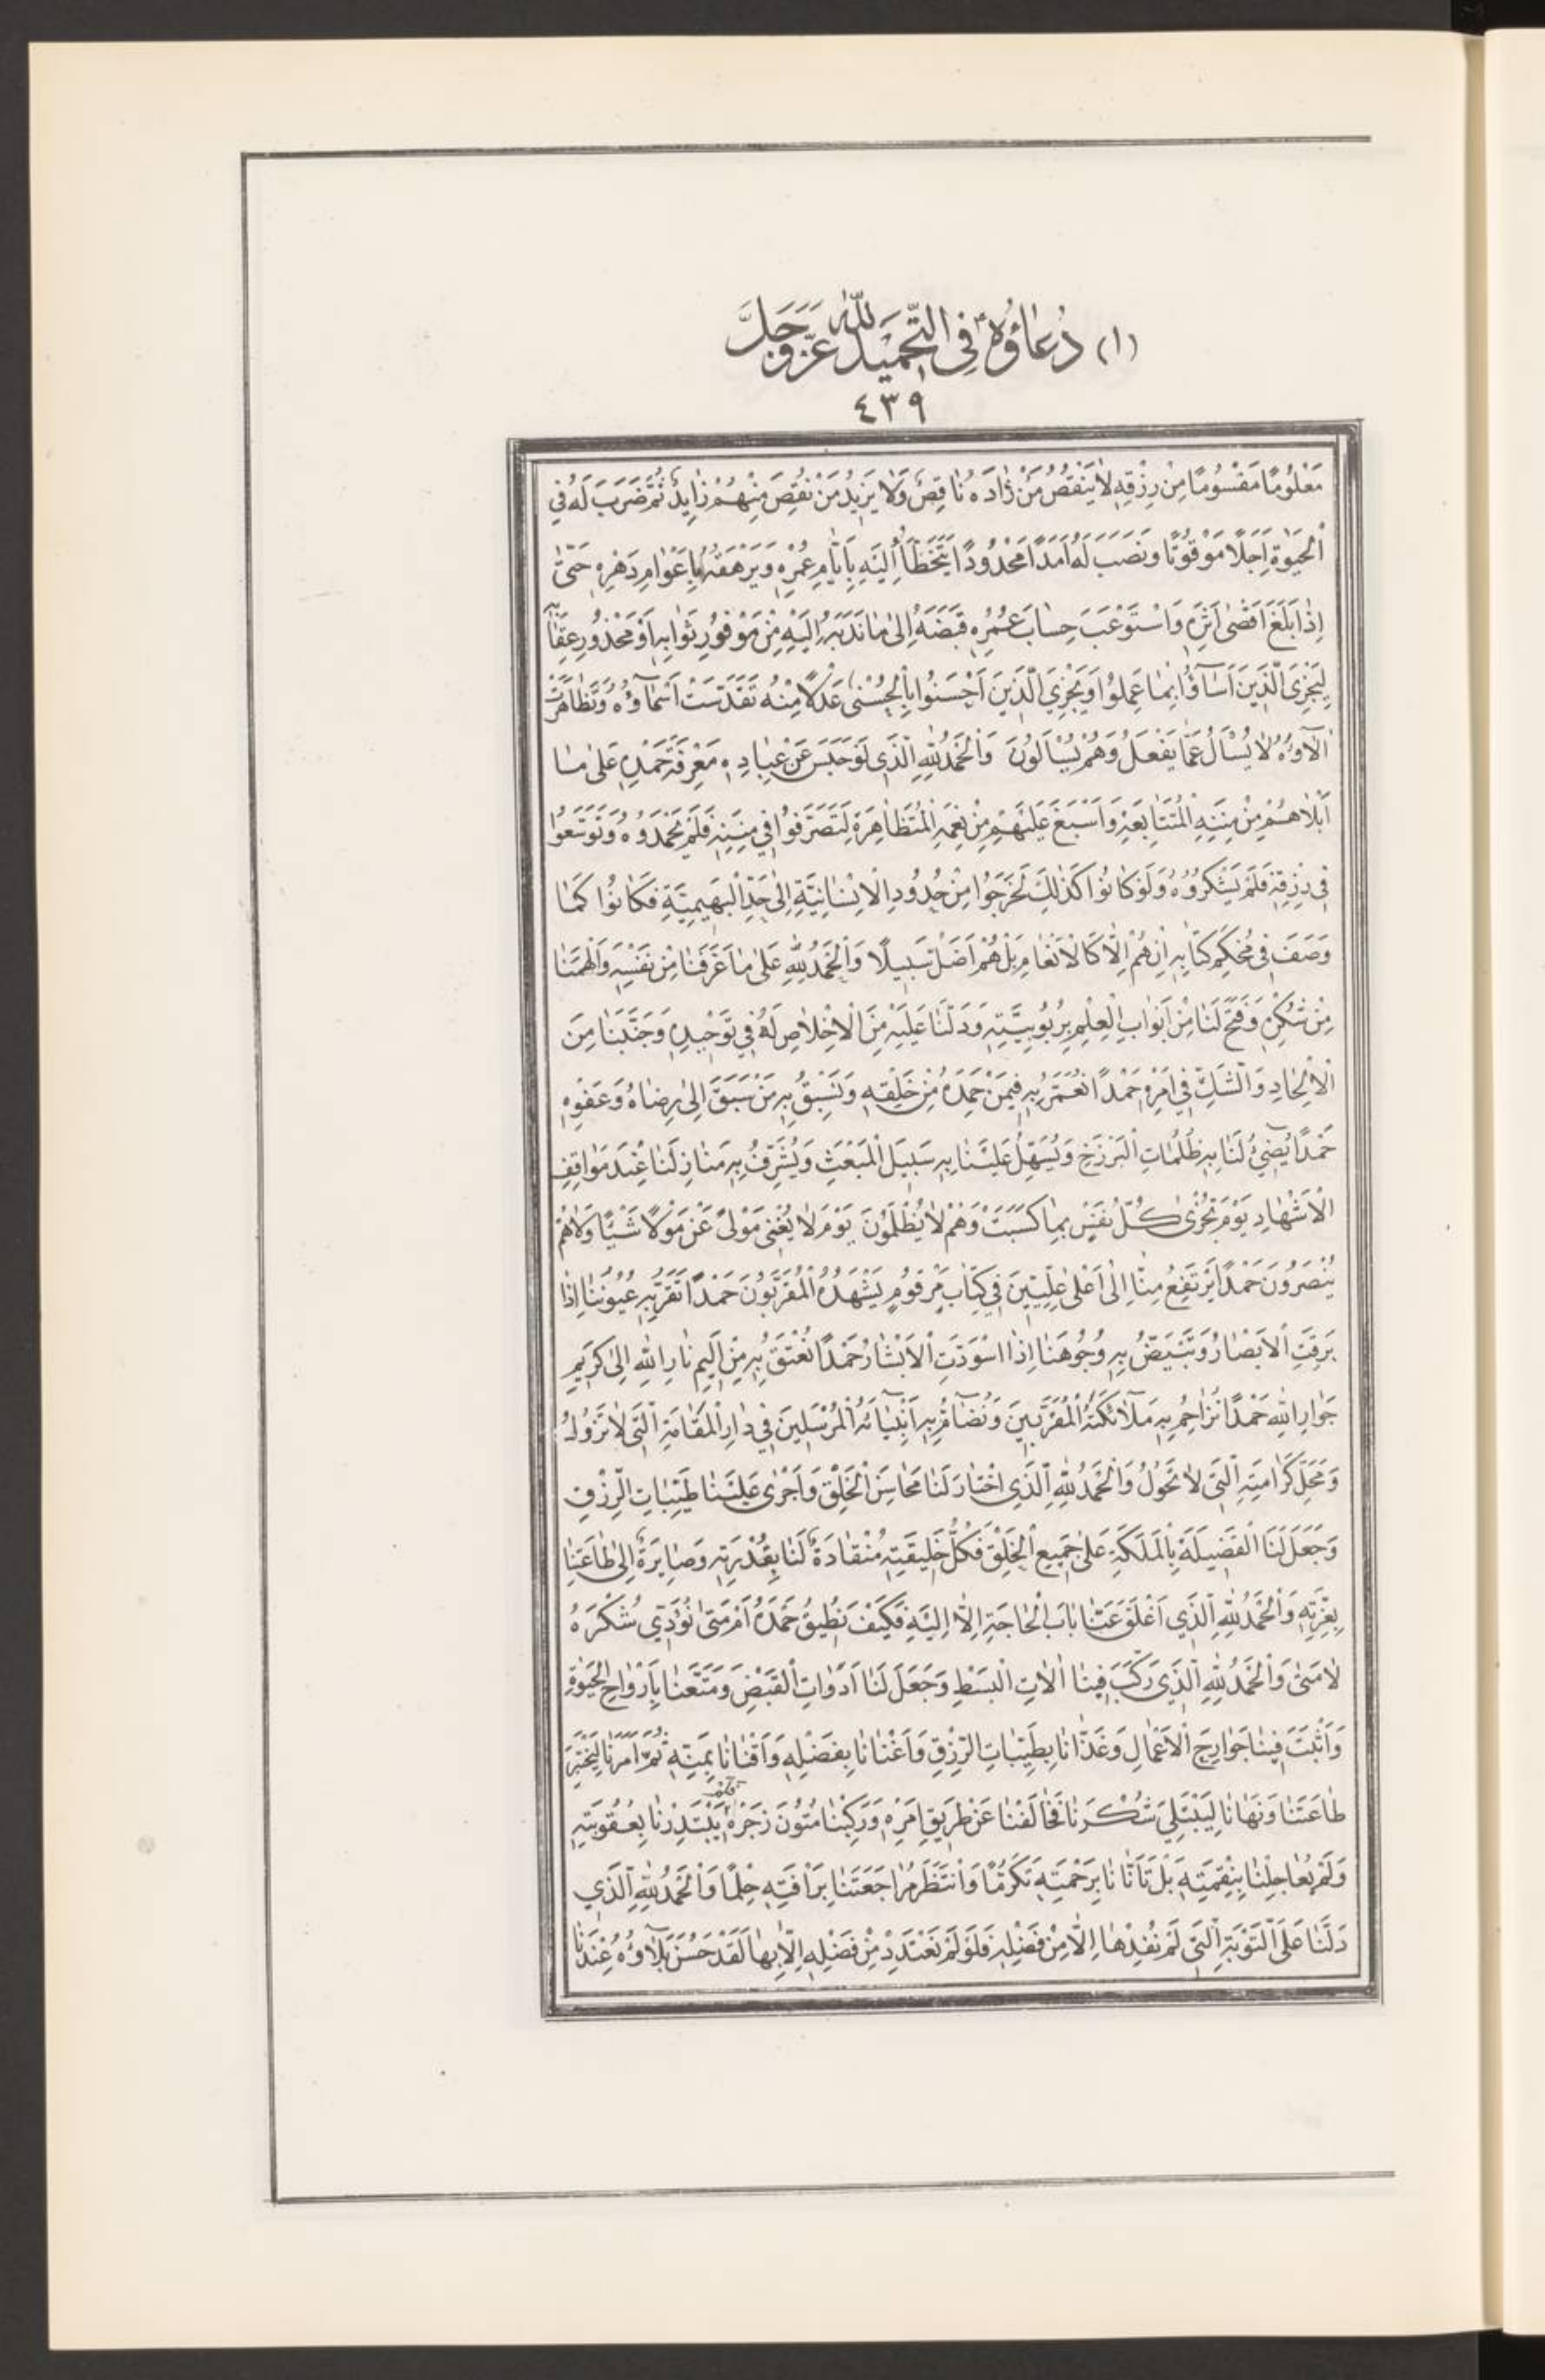 (١) دُعَاؤُهُ ۴ فِي التَّحْمِيدِ لِلّٰهِ عَزَّ وَجَلَّ
٤٣٩
مَعْلُومًا مَقْسُومًا مِنْ رِزْقِهِ لَا يَنْقُصُ مَنْ زَادَهُ نَاقِصٌ وَلَا يَزِيدُ مَنْ نَقَصَ مِنْهُمْ زَايِدٌ ثُمَّ ضَرَبَ لَهُ فِي
الْحَيٰوةِ اَجَلًا مَوْقُوتًا وَنَصَبَ لَهُ اَمَدًا مَحْدُودًا يَتَخَطَّأُ اِلَيْهِ بِاَيَّامِ عُمْرِهِ وَيَرْهَقُهُ بِاَعْوَامِ دَهْرِهِ حَتّٰى
اِذَا بَلَغَ اَقْصٰى اَثَرِهِ وَاسْتَوْعَبَ حِسَابَ عُمُرِهِ قَبَضَهُ اِلٰى مَا نَدَبَهُ اِلَيْهِ مِنْ مَوْفُورِ ثَوَابِهِ اَوْ مَحْذُورِ عِقَابِهِ
لِيَجْزِيَ الَّذِينَ اَسَاؤُا بِمَا عَمِلُوا وَيَجْزِيَ الَّذِينَ اَحْسَنُوا بِالْحُسْنٰى عَدْلًا مِنْهُ تَقَدَّسَتْ اَسْمَاؤُهُ وَتَظَاهَرَتْ
اٰلَاؤُهُ لَا يُسْاَلُ عَمَّا يَفْعَلُ وَهُمْ يُسْاَلُونَ وَالْحَمْدُ لِلّٰهِ الَّذِي لَوْ حَبَسَ عَنْ عِبَادِهِ مَعْرِفَةَ حَمْدِهِ عَلٰى مَا
اَبْلَاهُمْ مِنْ مِنَنِهِ الْمُتَتَابِعَةِ وَاَسْبَغَ عَلَيْهِمْ مِنْ نِعَمِهِ الْمُتَظَاهِرَةِ لَتَصَرَّفُوا فِي مِنَنِهِ فَلَمْ يَحْمَدُوهُ وَتَوَسَّعُوا
فِي رِزْقِهِ فَلَمْ يَشْكُرُوهُ وَلَوْ كَانُوا كَذٰلِكَ لَخَرَجُوا مِنْ حُدُودِ الْاِنْسَانِيَّةِ اِلٰى حَدِّ الْبَهِيمِيَّةِ فَكَانُوا كَمَا
وَصَفَ فِي مُحْكَمِ كِتَابِهِ اِنْ هُمْ اِلَّا كَالْاَنْعَامِ بَلْ هُمْ اَضَلُّ سَبِيلًا وَالْحَمْدُ لِلّٰهِ عَلٰى مَا عَرَّفَنَا مِنْ نَفْسِهِ وَاَلْهَمَنَا
مِنْ شُكْرِهِ وَفَتَحَ لَنَا مِنْ اَبْوَابِ الْعِلْمِ بِرُبُوبِيَّتِهِ وَدَلَّنَا عَلَيْهِ مِنَ الْاِخْلَاصِ لَهُ فِي تَوْحِيدِهِ وَجَنَّبَنَا مِنَ
الْاِلْحَادِ وَالشَّكِّ فِي اَمْرِهِ حَمْدًا نُعَمَّرُ بِهِ فِيمَنْ حَمِدَهُ مِنْ خَلْقِهِ وَنَسْبِقُ بِهِ مَنْ سَبَقَ اِلٰى رِضَاهُ وَعَفْوِهِ
حَمْدًا يُضِيءُ لَنَا بِهِ ظُلُمَاتِ الْبَرْزَخِ وَيُسَهِّلُ عَلَيْنَا بِهِ سَبِيلَ الْمَبْعَثِ وَيُشَرِّفُ بِهِ مَنَازِلَنَا عِنْدَ مَوَاقِفِ
الْاَشْهَادِ يَوْمَ تُجْزٰى كُلُّ نَفْسٍ بِمَا كَسَبَتْ وَهُمْ لَا يُظْلَمُونَ يَوْمَ لَا يُغْنِي مَوْلًى عَنْ مَوْلًا شَيْئًا وَلَا هُمْ
يُنْصَرُونَ حَمْدًا يَرْتَفِعُ مِنَّا اِلٰى اَعْلٰى عِلِّيِّينَ فِي كِتَابٍ مَرْقُومٍ يَشْهَدُهُ الْمُقَرَّبُونَ حَمْدًا تَقَرُّ بِهِ عُيُونُنَا اِذَا
بَرِقَتِ الْاَبْصَارُ وَتَبْيَضُّ بِهِ وُجُوهُنَا اِذَا اسْوَدَّتِ الْاَبْشَارُ حَمْدًا نُعْتَقُ بِهِ مِنْ اَلِيمِ نَارِ اللّٰهِ اِلٰى كَرِيمِ
جِوَارِ اللّٰهِ حَمْدًا نُزَاحِمُ بِهِ مَلَائِكَتَهُ الْمُقَرَّبِينَ وَنُضَامُّ بِهِ اَنْبِيَائَهُ الْمُرْسَلِينَ فِي دَارِ الْمُقَامَةِ الَّتِي لَا تَزُولُ
وَمَحَلِّ كَرَامَتِهِ الَّتِي لَا تَحُولُ وَالْحَمْدُ لِلّٰهِ الَّذِي اخْتَارَ لَنَا مَحَاسِنَ الْخَلْقِ وَاَجْرٰى عَلَيْنَا طَيِّبَاتِ الرِّزْقِ
وَجَعَلَ لَنَا الْفَضِيلَةَ بِالْمَلَكَةِ عَلٰى جَمِيعِ الْخَلْقِ فَكُلُّ خَلِيقَتِهِ مُنْقَادَةٌ لَنَا بِقُدْرَتِهِ وَصَايِرَةٌ اِلٰى طَاعَتِنَا
بِعِزَّتِهِ وَالْحَمْدُ لِلّٰهِ الَّذِي اَغْلَقَ عَنَّا بَابَ الْحَاجَةِ اِلَّا اِلَيْهِ فَكَيْفَ نُطِيقُ حَمْدَهُ اَمْ مَتٰى نُؤَدِّي شُكْرَهُ
لَا مَتٰى وَالْحَمْدُ لِلّٰهِ الَّذِي رَكَّبَ فِينَا اٰلَاتِ الْبَسْطِ وَجَعَلَ لَنَا اَدَوَاتِ الْقَبْضِ وَمَتَّعَنَا بِاَرْوَاحِ الْحَيٰوةِ
وَاَثْبَتَ فِينَا جَوَارِحَ الْاَعْمَالِ وَغَذَّانَا بِطَيِّبَاتِ الرِّزْقِ وَاَغْنَانَا بِفَضْلِهِ وَاَقْنَانَا بِمَنِّهِ ثُمَّ اَمَرَنَا لِيَخْتَبِرَ
طَاعَتَنَا وَنَهَانَا لِيَبْتَلِيَ شُكْرَنَا فَخَالَفْنَا عَنْ طَرِيقِ اَمْرِهِ وَرَكِبْنَا مُتُونَ زَجْرِهِ فَلَمْ يَبْتَدِرْنَا بِعُقُوبَتِهِ
وَلَمْ يُعَاجِلْنَا بِنِقْمَتِهِ بَلْ تَاَنَّانَا بِرَحْمَتِهِ تَكَرُّمًا وَانْتَظَرَ مُرَاجَعَتَنَا بِرَاْفَتِهِ حِلْمًا وَالْحَمْدُ لِلّٰهِ الَّذِي
دَلَّنَا عَلَى التَّوْبَةِ الَّتِي لَمْ نُفِدْهَا اِلَّا مِنْ فَضْلِهِ فَلَوْ لَمْ نَعْتَدِدْ مِنْ فَضْلِهِ اِلَّا بِهَا لَقَدْ حَسُنَ بَلَاؤُهُ عِنْدَنَا